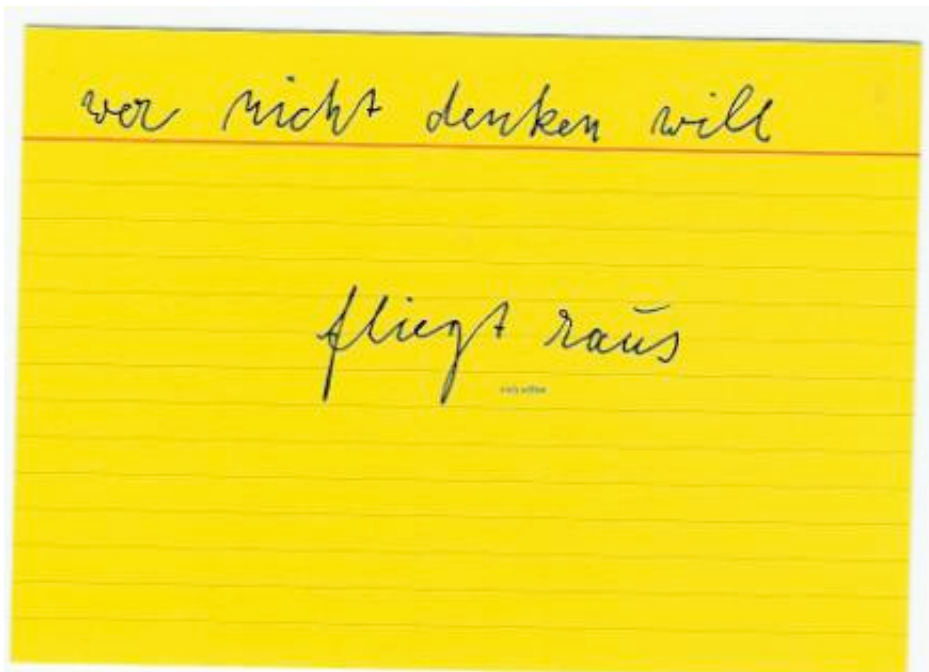 wer nicht denken will
fliegt raus